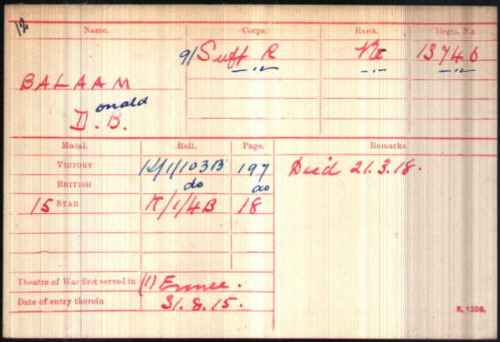 12
Name. Corps. Rank. Regtl. No.
9/Suff R Pte 13740
BALAAM -"- -"- -"-
onald
D.B.
Medal. Roll. Page. Remarks.
VICTORY K/1/103B 197 Died 21.3.18.
BRITISH do do
15 STAR K/1/4B 18
Theatre of War first served in (1) France.
Date of entry therein 31.8.15.
K. 1380.